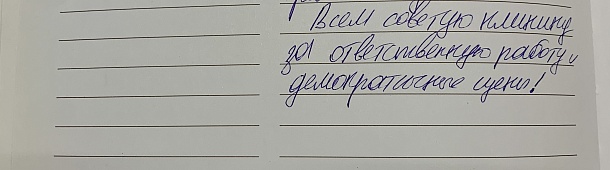 Всем советую клинику
за ответственную работу и
демократичные цены!